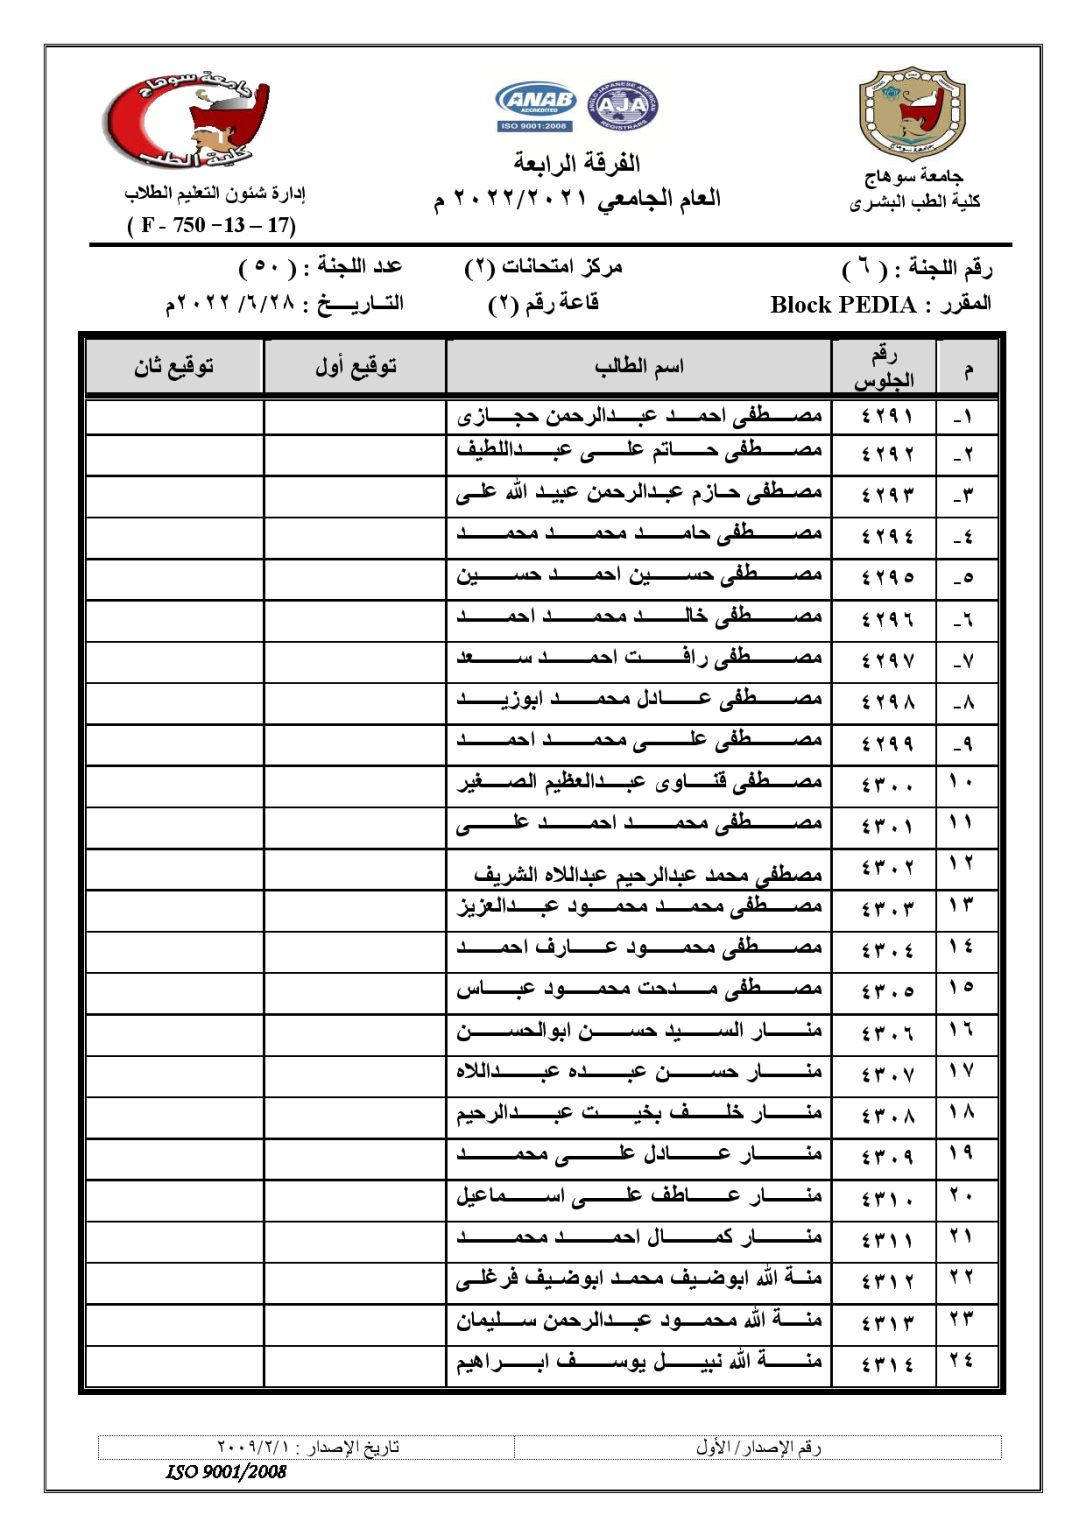 جامعة سوهاج
كلية الطب
ANAB
ACCREDITED
ISO 9001:2008
ANGLO JAPANESE AMERICAN
AJA
REGISTRARS
جامعة سوهاج
جامعة سوهاج
كلية الطب البشرى
الفرقة الرابعة
العام الجامعي ٢٠٢٢/٢٠٢١ م
إدارة شئون التعليم الطلاب
( F - 750 –13 – 17)
رقم اللجنة : ( ٦ ) مركز امتحانات (٢) عدد اللجنة : ( ٥٠ )
المقرر : Block PEDIA قاعة رقم (٢) التـاريـــخ : ٢٠٢٢ /٦/٢٨م
م رقم الجلوس اسم الطالب توقيع أول توقيع ثان
١- ٤٢٩١ مصطفى احمد عبدالرحمن حجازى
٢- ٤٢٩٢ مصطفى حاتم على عبداللطيف
٣- ٤٢٩٣ مصطفى حازم عبدالرحمن عبيد الله على
٤- ٤٢٩٤ مصطفى حامد محمد محمد
٥- ٤٢٩٥ مصطفى حسين احمد حسين
٦- ٤٢٩٦ مصطفى خالد محمد احمد
٧- ٤٢٩٧ مصطفى رافت احمد سعد
٨- ٤٢٩٨ مصطفى عادل محمد ابوزيد
٩- ٤٢٩٩ مصطفى على محمد احمد
١٠ ٤٣٠٠ مصطفى قناوى عبدالعظيم الصغير
١١ ٤٣٠١ مصطفى محمد احمد على
١٢ ٤٣٠٢ مصطفى محمد عبدالرحيم عبداللاه الشريف
١٣ ٤٣٠٣ مصطفى محمد محمود عبدالعزيز
١٤ ٤٣٠٤ مصطفى محمود عارف احمد
١٥ ٤٣٠٥ مصطفى مدحت محمود عباس
١٦ ٤٣٠٦ منار السيد حسن ابوالحسن
١٧ ٤٣٠٧ منار حسن عبده عبداللاه
١٨ ٤٣٠٨ منار خلف بخيت عبدالرحيم
١٩ ٤٣٠٩ منار عادل على محمد
٢٠ ٤٣١٠ منار عاطف على اسماعيل
٢١ ٤٣١١ منار كمال احمد محمد
٢٢ ٤٣١٢ منة الله ابوضيف محمد ابوضيف فرغلى
٢٣ ٤٣١٣ منة الله محمود عبدالرحمن سليمان
٢٤ ٤٣١٤ منة الله نبيل يوسف ابراهيم
رقم الإصدار/ الأول تاريخ الإصدار : ٢٠٠٩/٢/١
ISO 9001/2008